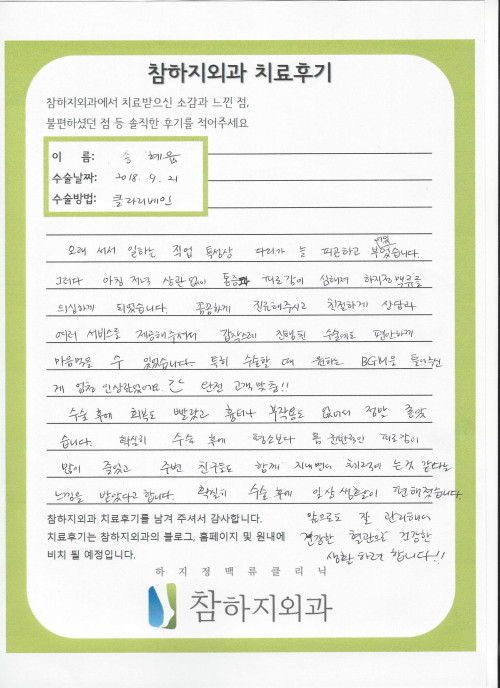 참하지외과 치료후기
참하지외과에서 치료받으신 소감과 느낀 점,
불편하셨던 점 등 솔직한 후기를 적어주세요
이 름: 승 혜
수술날짜: 2018. 9. 21
수술방법: 클라리베인
오래 서서 일하는 직업 특성상 다리가 늘 피곤하고 부었습니다.
그러다 아침 저녁 상관 없이 통증과 피로감이 심해져 하지정맥류를
의심하게 되었습니다. 꼼꼼하게 진료해주시고 친절하게 상담과
여러 서비스를 제공해주셔서 갑작스레 진행된 수술에도 편안하게
마음먹을 수 있었습니다. 특히 수술할 때 원하는 BGM을 틀어주신
게 엄청 인상깊었어요. 완전 고객맞춤!!
수술 후에 회복도 빨랐고 흉터나 부작용도 없어서 정말 좋았
습니다. 확실히 수술 후에 평소보다 몸 전반적인 피로감이
많이 줄었고 주변 친구들도 함께 지내면서 체력이 는것 같다는
느낌을 받았다고 합니다. 확실히 수술 후에 일상생활이 편해졌습니다.
앞으로도 잘 관리해서
건강한 혈관으로 건강한
생활 하려 합니다!!
참하지외과 치료후기를 남겨 주셔서 감사합니다.
치료후기는 참하지외과의 블로그, 홈페이지 및 원내에
비치 될 예정입니다.
하지정맥류클리닉
참하지외과